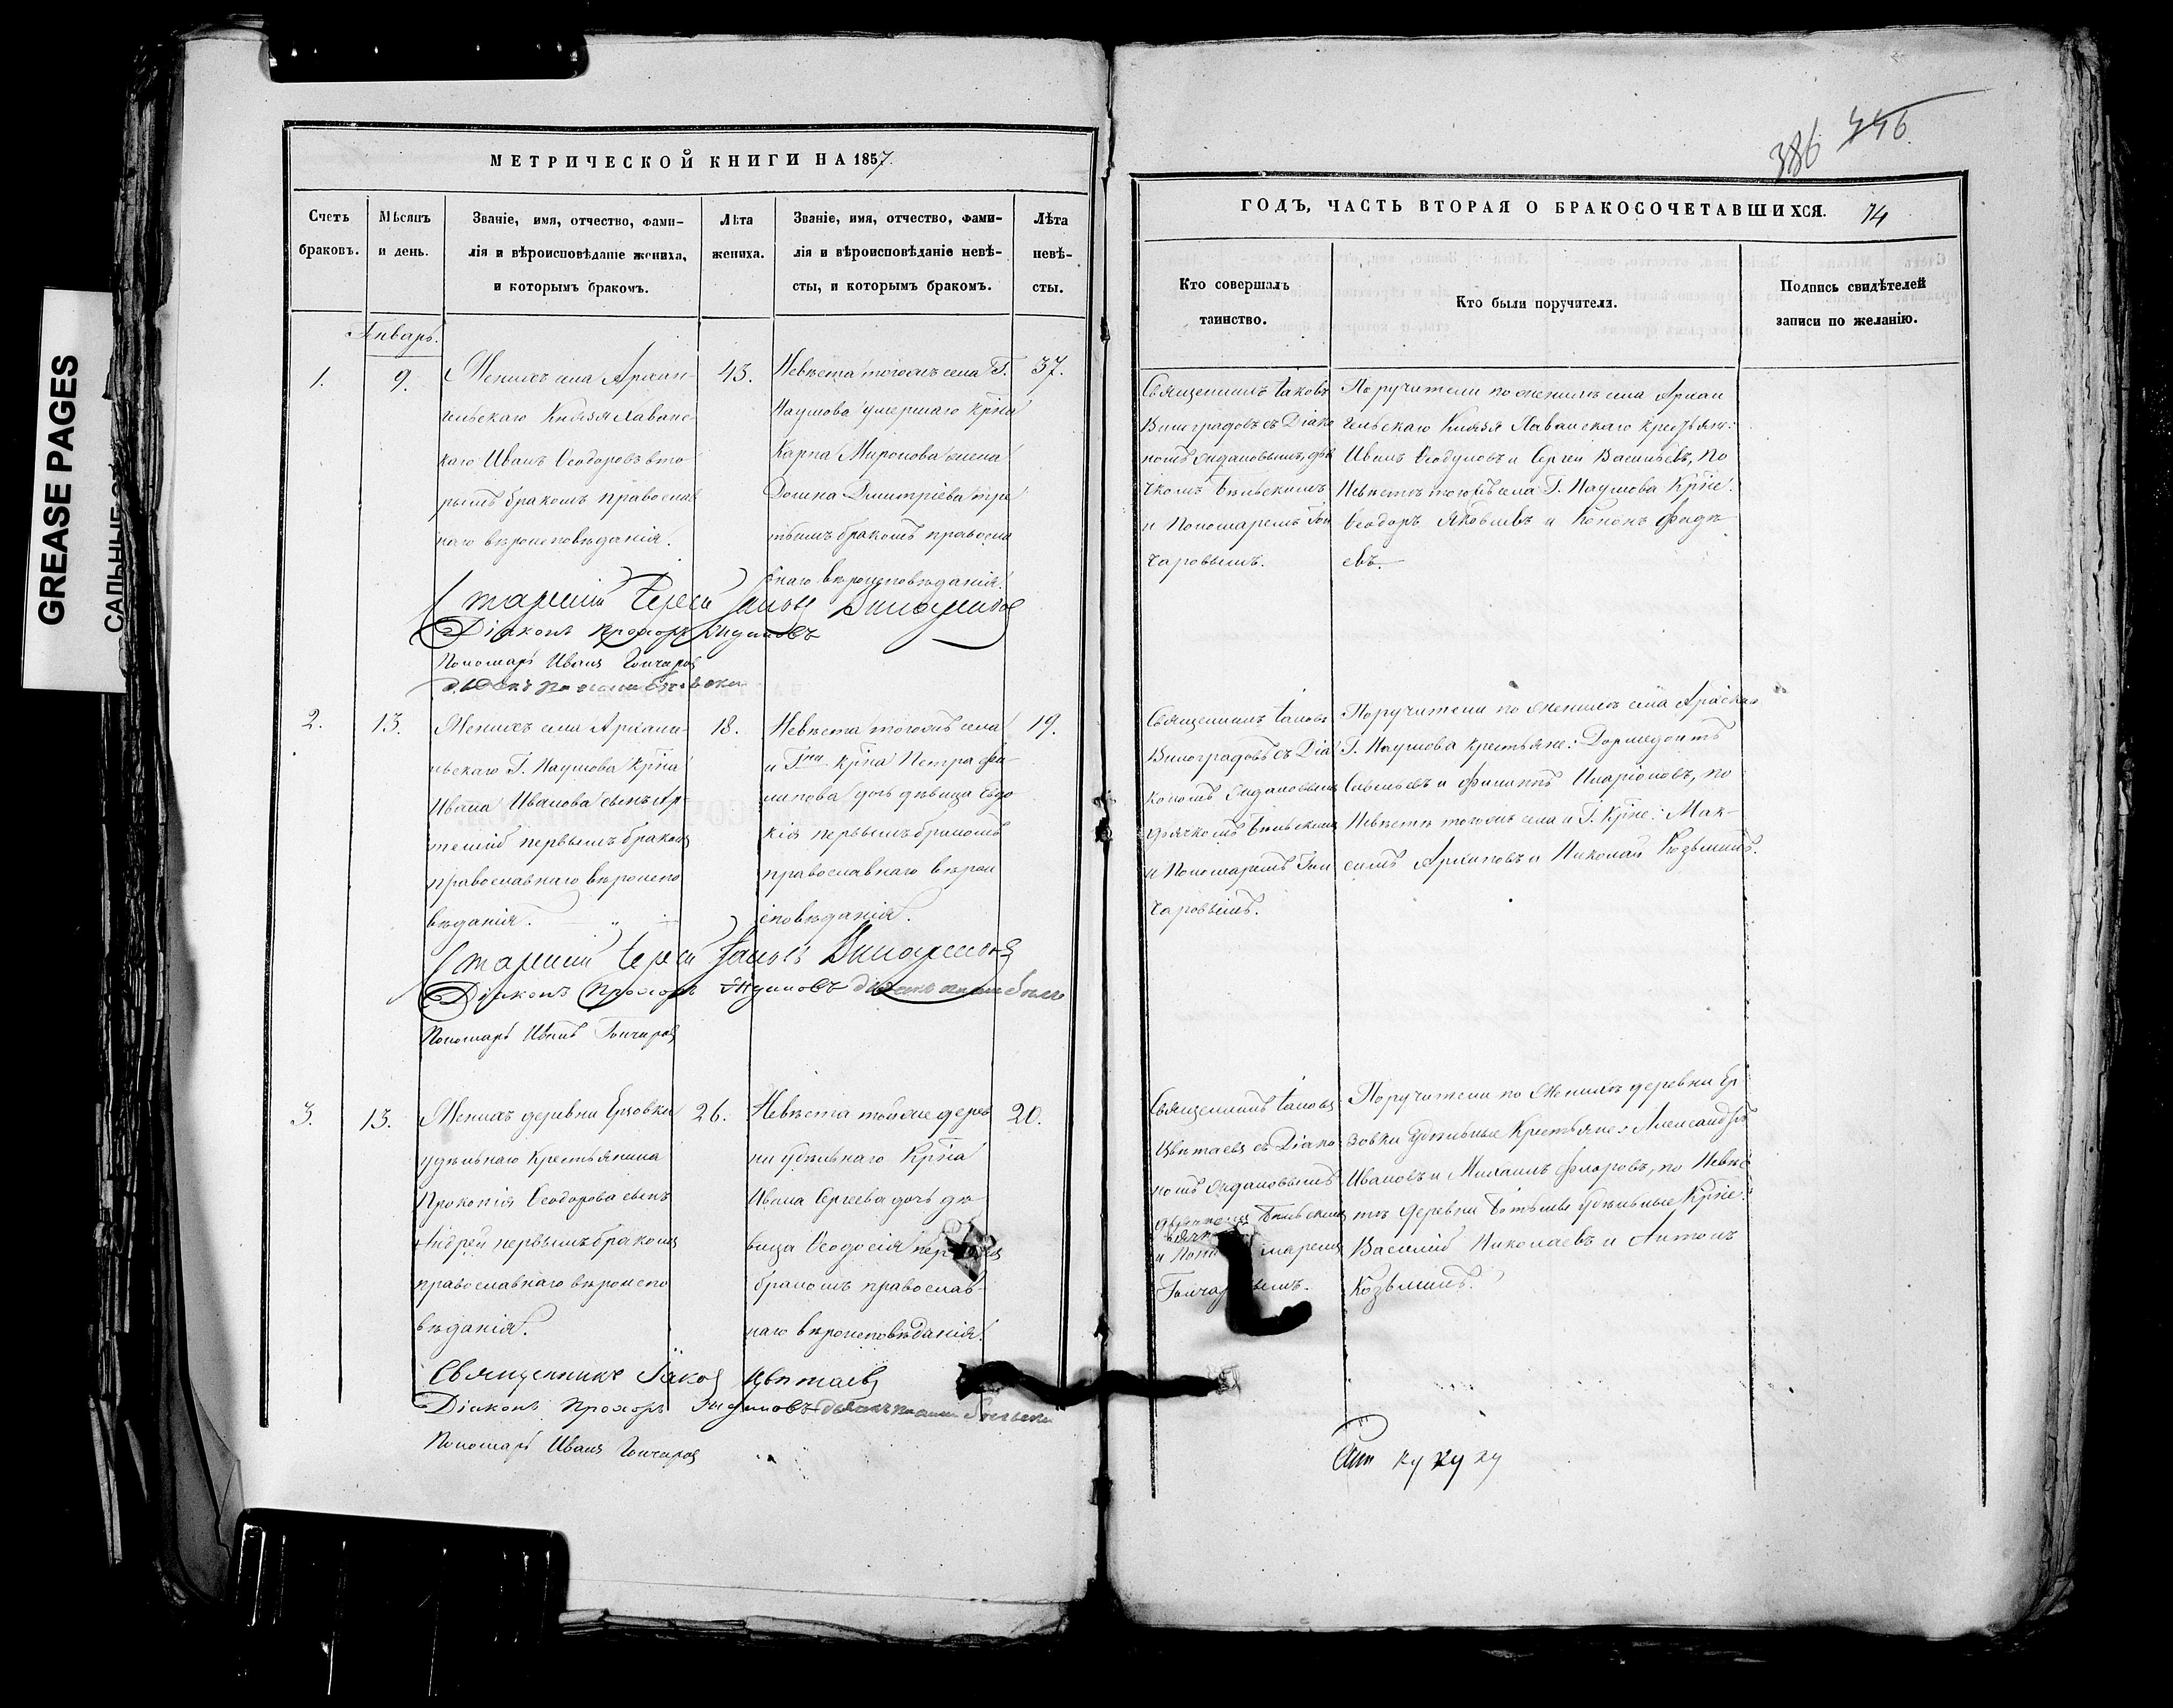 GREASE PAGES
САЛЬНЫЕ
МЕТРИЧЕСКОЙ КНИГИ НА 1857.
Счетъ браковъ.
Мѣсяцъ и день.
Званіе, имя, отчество, фами-
лія и вѣроисповѣданіе жениха,
и которымъ бракомъ.
Лѣта
жениха.
Званіе, имя, отчество, фами-
лія и вѣроисповѣданіе невѣ-
сты, и которымъ бракомъ.
Лѣта
невѣ-
сты.
Январь.
1.
9.
Женихъ села Архан-
гельскаго Князя Лаванс-
каго Иванъ Ѳеодоровъ вто
рымъ бракомъ православ
наго вѣроисповѣданія.
43.
Невѣста тогожъ села Г.
Наумова умершаго крѣна
Карпа Миронова жена
Домна Димитріева тре
тьимъ бракомъ правосла
внаго вѣроисповѣданія.
37.
Старшій Іерей Іаковъ Виноградов
Діаконъ Прохоръ
Пономарь Иванъ Гончаров
2.
13.
Женихъ села Архангн-
льскаго Г. Наумова крѣна
Ивана Иванова сынъ Ар-
темій первымъ бракомъ
православнаго вѣроиспо
вѣданія.
18.
Невѣста тогожъ села
и Гна крѣна Петра Фи-
липова дочь дѣвица Евдо
кія первымъ бракомъ
православнаго вѣрои
споведанія.
19.
Старшій Іерей Іаковъ Виноградовъ
Діаконъ Прохоръ
Пономарь Иванъ Гончаров
3.
13.
Женихъ деревни Ерзовки
удѣльнаго крестьянина
Прокопія Ѳеодорова сынъ
Андрей первымъ бракомъ
православнаго вѣроиспо
вѣданія.
26.
Невѣста тойже дерев
ни удѣльнаго крѣна
Ивана Сергеева дочь дѣ
вица Ѳеодосія первымъ
бракомъ православ-
наго вѣроисповѣданія.
20.
Священникъ Іаков Цвѣтаевъ
Діаконъ Прохоръ
Пономарь Иванъ Гончаров
386 446.
ГОДЪ, ЧАСТЬ ВТОРАЯ О БРАКОСОЧЕТАВШИХСЯ. 14
Кто совершалъ
таинство.
Кто были поручители.
Подпись свидѣтелей
записи по желанію.
Священникъ Іаковъ
Виноградовъ съ Діако
номъ дья
чкомъ Бѣльскимъ
и Пономаремъ Гон
чаровымъ.
Поручители по женихѣ села Архан
гельскаго Князя Лаванскаго крестьян:
Иванъ Ѳеодуловъ и Сергей Васильевъ, по
Невѣстѣ тогожъ села Г. Наумова Крѣне:
Ѳеодоръ Яковлевъ и Кононъ Фадѣ
евъ.
Священникъ Іаковъ
Виноградовъ съ Діа
кономъ
дьячкомъ Бѣльскимъ
и Пономаремъ Гон
чаровымъ.
Поручители по Женихѣ села
Г. Наумова крестьяне: Дормедонтъ
Савельевъ и Филиппъ Иларіоновъ, по
Невѣстѣ тогожъ села и Г. Крѣне: Мак-
симъ Архиповъ и Николай Козьминъ.
Священникъ Іаковъ
Цвѣтаевъ съ Діако
номъ
Бѣльскимъ
и Пономаремъ
Гончаровымъ.
Поручители по Женихѣ деревни Ер
зовки Удѣльные Крестьяне: Александръ
Ивановъ и Михаилъ Флоровъ, по Невѣс
тѣ деревни удѣльные Крѣне:
Василій Николаевъ и Антонъ
Козьминъ.
ку ку ку